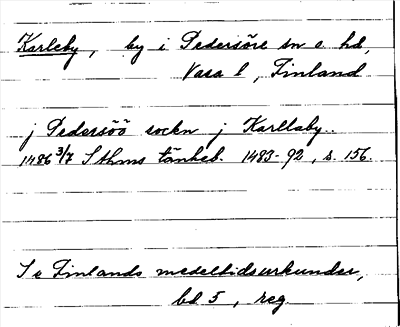 Karleby, by i Pedersöre sn o. hd,
Vasa l, Finland
j Pedersöö sockn j Karllaby..
1486 3/7 Sthms tänkeb. 1483-92, s. 156.
Se Finlands medeltidsurkunder,
bd 5, reg